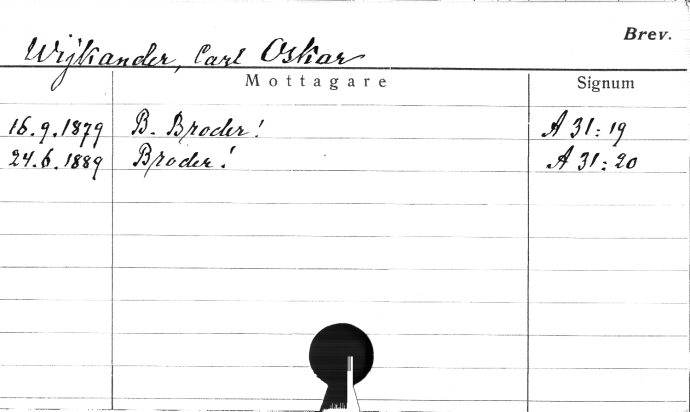 Brev.
Wijkander, Carl Oskar
Mottagare Signum
16.9.1879 B. Broder! A 31:19
24.6.1889 Broder! A 31:20